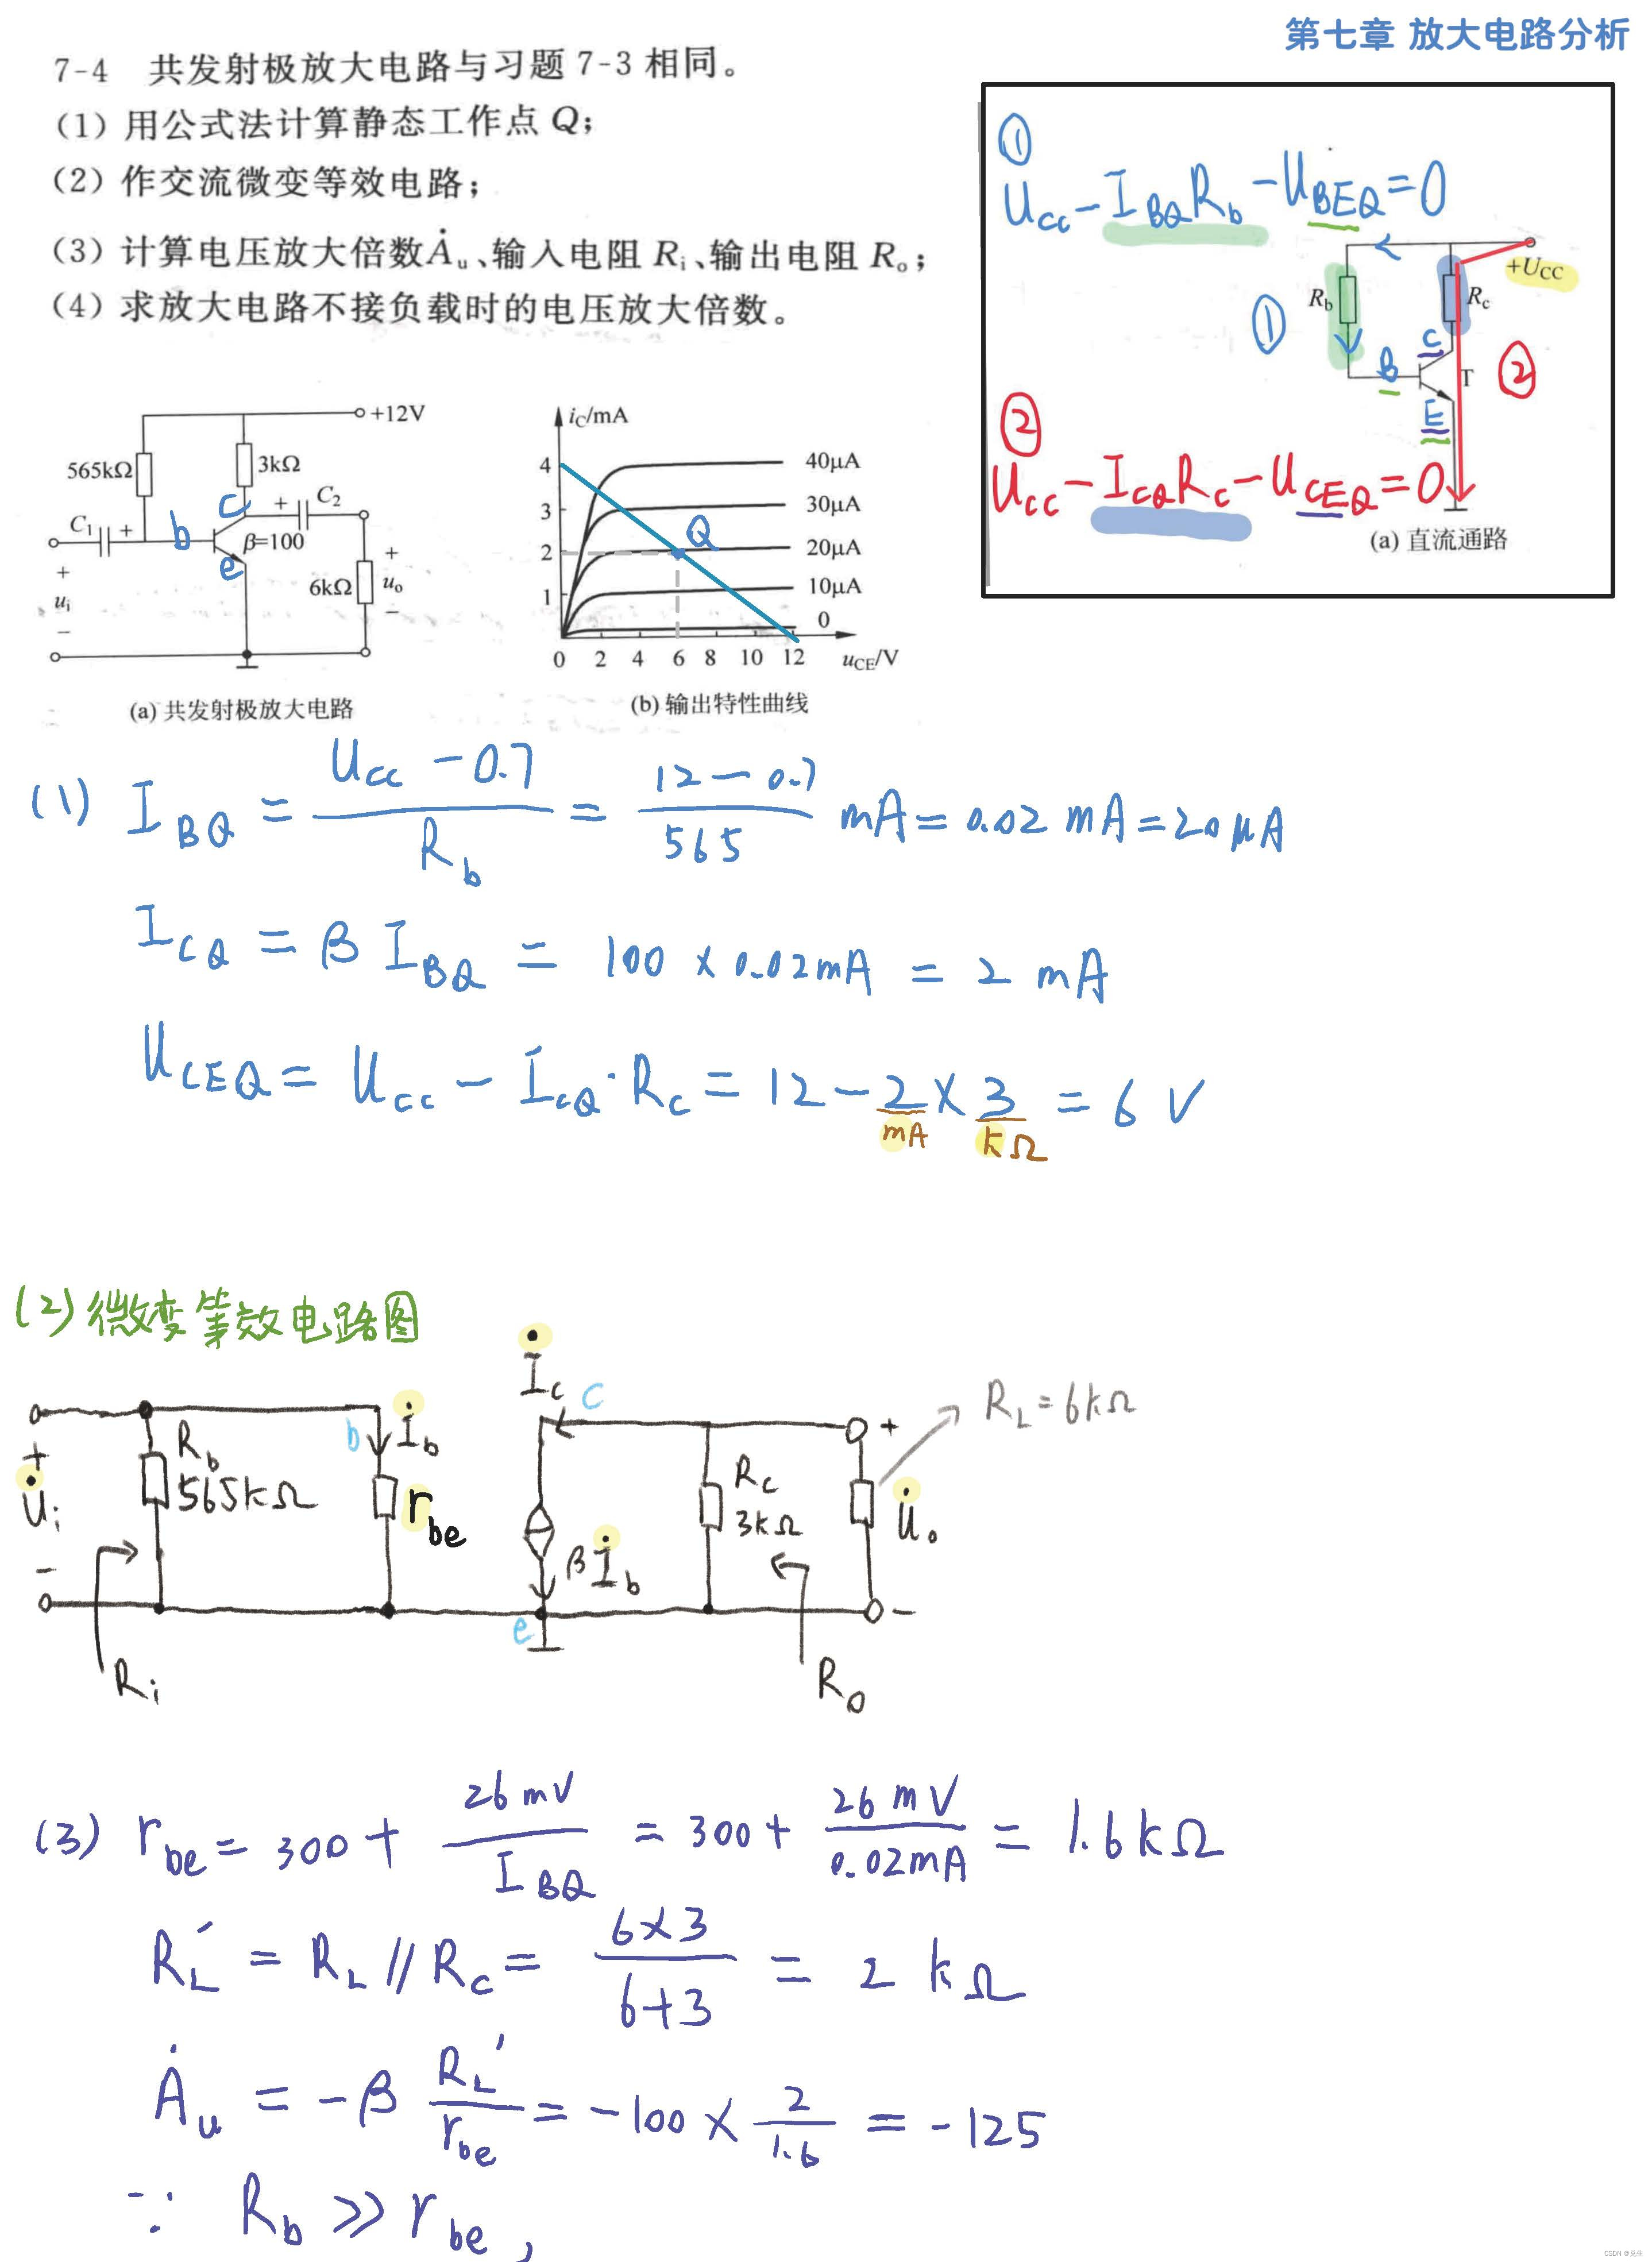 第七章 放大电路分析
7-4 共发射极放大电路与习题 7-3 相同。
(1) 用公式法计算静态工作点 Q;
(2) 作交流微变等效电路;
(3) 计算电压放大倍数 Ȧu、输入电阻 Ri、输出电阻 Ro;
(4) 求放大电路不接负载时的电压放大倍数。
①
Ucc - IBQRb - UBEQ = 0
+UCC
Rb
Rc
①
C
B
T
②
E
②
Ucc - ICQRc - UCEQ = 0
(a) 直流通路
+12V
565kΩ
3kΩ
c
+ C2
C1 +
b
β=100
e
+
6kΩ
uo
−
+
ui
−
(a) 共发射极放大电路
iC/mA
4
40μA
3
30μA
Q
2
20μA
1
10μA
0
0 2 4 6 8 10 12 uCE/V
(b) 输出特性曲线
(1) IBQ = (Ucc - 0.7)/Rb = (12 - 0.7)/565 mA = 0.02 mA = 20 μA
ICQ = β IBQ = 100 × 0.02mA = 2 mA
UCEQ = Ucc - ICQ·Rc = 12 - 2 × 3 = 6 V
mA kΩ
(2) 微变等效电路图
İc
c
RL = 6kΩ
b
İb
+
+
U̇i
−
Rb
565kΩ
rbe
βİb
Rc
3kΩ
U̇o
e
−
Ri
Ro
(3) rbe = 300 + 26mV/IBQ = 300 + 26mV/0.02mA = 1.6kΩ
RL′ = RL // Rc = (6×3)/(6+3) = 2 kΩ
Ȧu = -β RL′/rbe = -100 × 2/1.6 = -125
∵ Rb ≫ rbe,